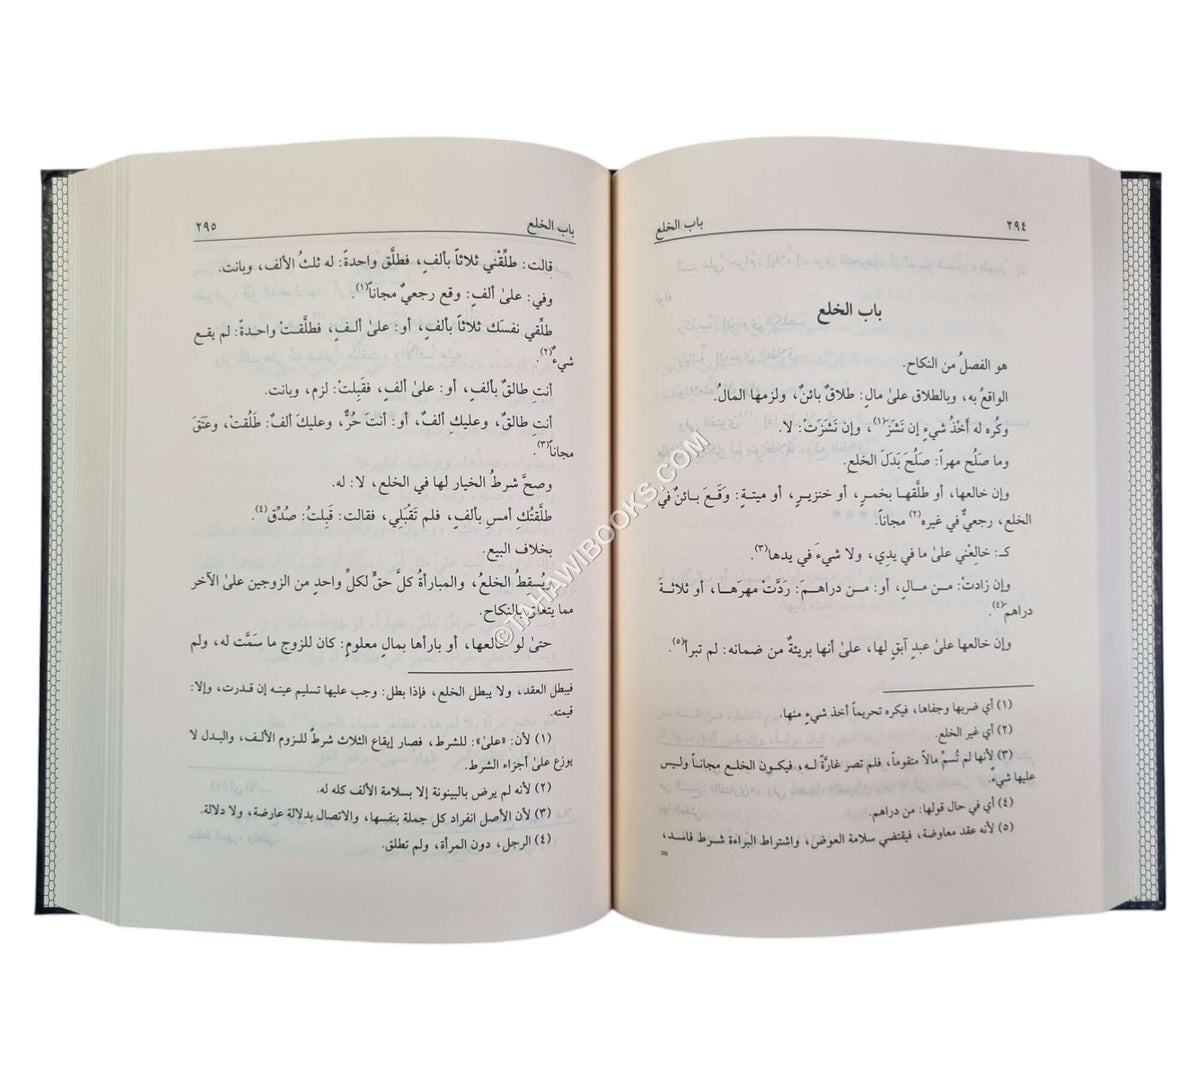 ٢٩٤ باب الخلع
باب الخلع
هو الفصلُ من النكاح.
الواقعُ به، وبالطلاق علىٰ مالٍ: طلاقٌ بائنٌ، ولزمها المالُ.
وكُره له أَخْذُ شيءٍ إن نَشَزَ(١)، وإن نَشَزَتْ: لا.
وما صَلُح مهراً: صَلُحَ بَدَلَ الخلع.
وإن خالعها، أو طلَّقها بخمرٍ، أو خنزيرٍ، أو ميتةٍ: وَقَعَ بائنٌ في
الخلع، رجعيٌّ في غيره(٢) مجاناً.
كـ: خالِعْني علىٰ ما في يدِي، ولا شيءَ في يدها(٣).
وإن زادتْ: من مالٍ، أو: من دراهمَ: رَدَّتْ مهرَها، أو ثلاثةَ
دراهم(٤).
وإن خالعها علىٰ عبدٍ آبقٍ لها، علىٰ أنها بريئةٌ من ضمانه: لم تبرأ(٥).
(١) أي ضربها وجفاها، فيكره تحريماً أخذ شيءٍ منها.
(٢) أي غير الخلع.
(٣) لأنها لم تُسمِّ مالاً متقوماً، فلم تصر غارَّةً له، فيكون الخلع مجاناً وليس
عليها شيءٌ.
(٤) أي في حال قولها: من دراهم.
(٥) لأنه عقد معاوضة، فيقتضي سلامة العوض، واشتراط البراءة شرط فاسد،
=
باب الخلع ٢٩٥
قالت: طلِّقْني ثلاثاً بألفٍ، فطلَّق واحدةً: له ثلثُ الألف، وبانت.
وفي: علىٰ ألفٍ: وقع رجعيٌّ مجاناً(١).
طلِّقي نفسَك ثلاثاً بألفٍ، أو: علىٰ ألفٍ، فطلَّقتْ واحدةً: لم يقع
شيءٌ(٢).
أنتِ طالقٌ بألفٍ، أو: علىٰ ألفٍ، فقَبِلتْ: لزم، وبانت.
أنتِ طالقٌ، وعليكِ ألفٌ، أو: أنتَ حُرٌّ، وعليكَ ألفٌ: طَلُقتْ، وعَتَقَ
مجاناً(٣).
وصحَّ شرطُ الخيار لها في الخلع، لا: له.
طلَّقتُكِ أمسِ بألفٍ، فلم تَقْبَلِي، فقالت: قَبِلتُ: صُدِّق(٤).
بخلاف البيع.
ويُسقِطُ الخلعُ، والمبارأةُ كلَّ حقٍّ لكلِّ واحدٍ من الزوجين علىٰ الآخر
مما يتعلَّق بالنكاح.
حتىٰ لو خالعها، أو بارأها بمالٍ معلومٍ: كان للزوج ما سَمَّت له، ولم
فيبطل العقد، ولا يبطل الخلع، فإذا بطل: وجب عليها تسليم عينه إن قدرت، وإلا:
قيمته.
(١) لأن: «علىٰ»: للشرط، فصار إيقاع الثلاث شرطٌ للزوم الألف، والبدل لا
يوزع علىٰ أجزاء الشرط.
(٢) لأنه لم يرض بالبينونة إلا بسلامة الألف كله له.
(٣) لأن الأصل انفراد كل جملة بنفسها، والاتصال بدلالة عارضة، ولا دلالة.
(٤) الرجل، دون المرأة، ولم تطلق.
©TAHAWIBOOKS.COM